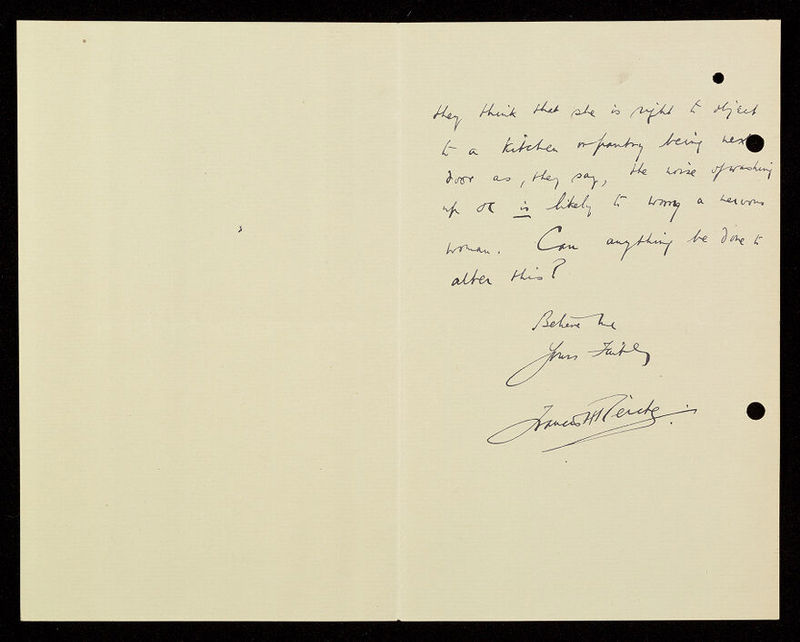 they think that she is right to object
to a kitchen or pantry being next
door as, they say, the noise of washing
up etc is likely to worry a nervous
woman. Can anything be done to
alter this?
Believe me
Yours Faithfully
Francis H